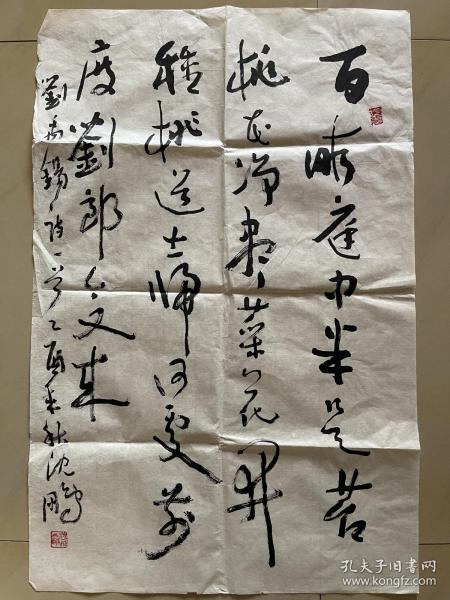 百畝庭中半是苔
桃花淨盡菜花開
種桃道士歸何處前
度劉郎今又來
劉禹錫詩一首乙酉秋沈鵬
孔夫子旧书网
www.kongfz.com